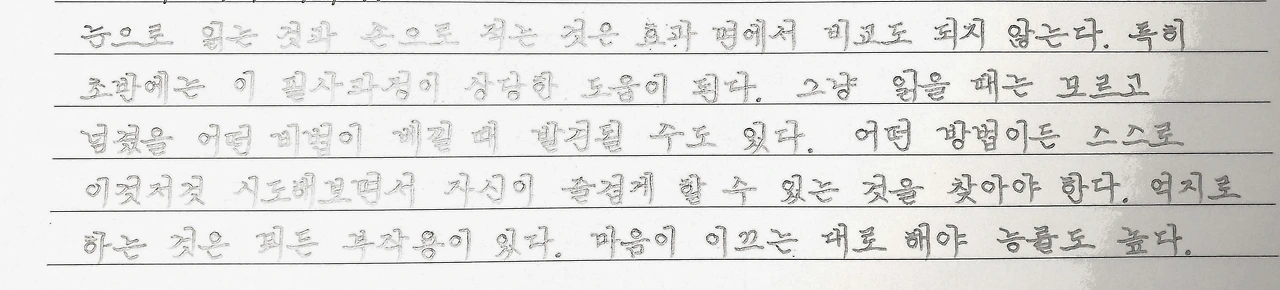 눈으로 읽는 것과 손으로 적는 것은 효과 면에서 비교도 되지 않는다. 특히
초반에는 이 필사과정이 상당한 도움이 된다. 그냥 읽을 때는 모르고
넘겼을 어떤 비법이 베낄 때 발견될 수도 있다. 어떤 방법이든 스스로
이것저것 시도해보면서 자신이 즐겁게 할 수 있는 것을 찾아야 한다. 억지로
하는 것은 뭐든 부작용이 있다. 마음이 이끄는 대로 해야 능률도 높다.